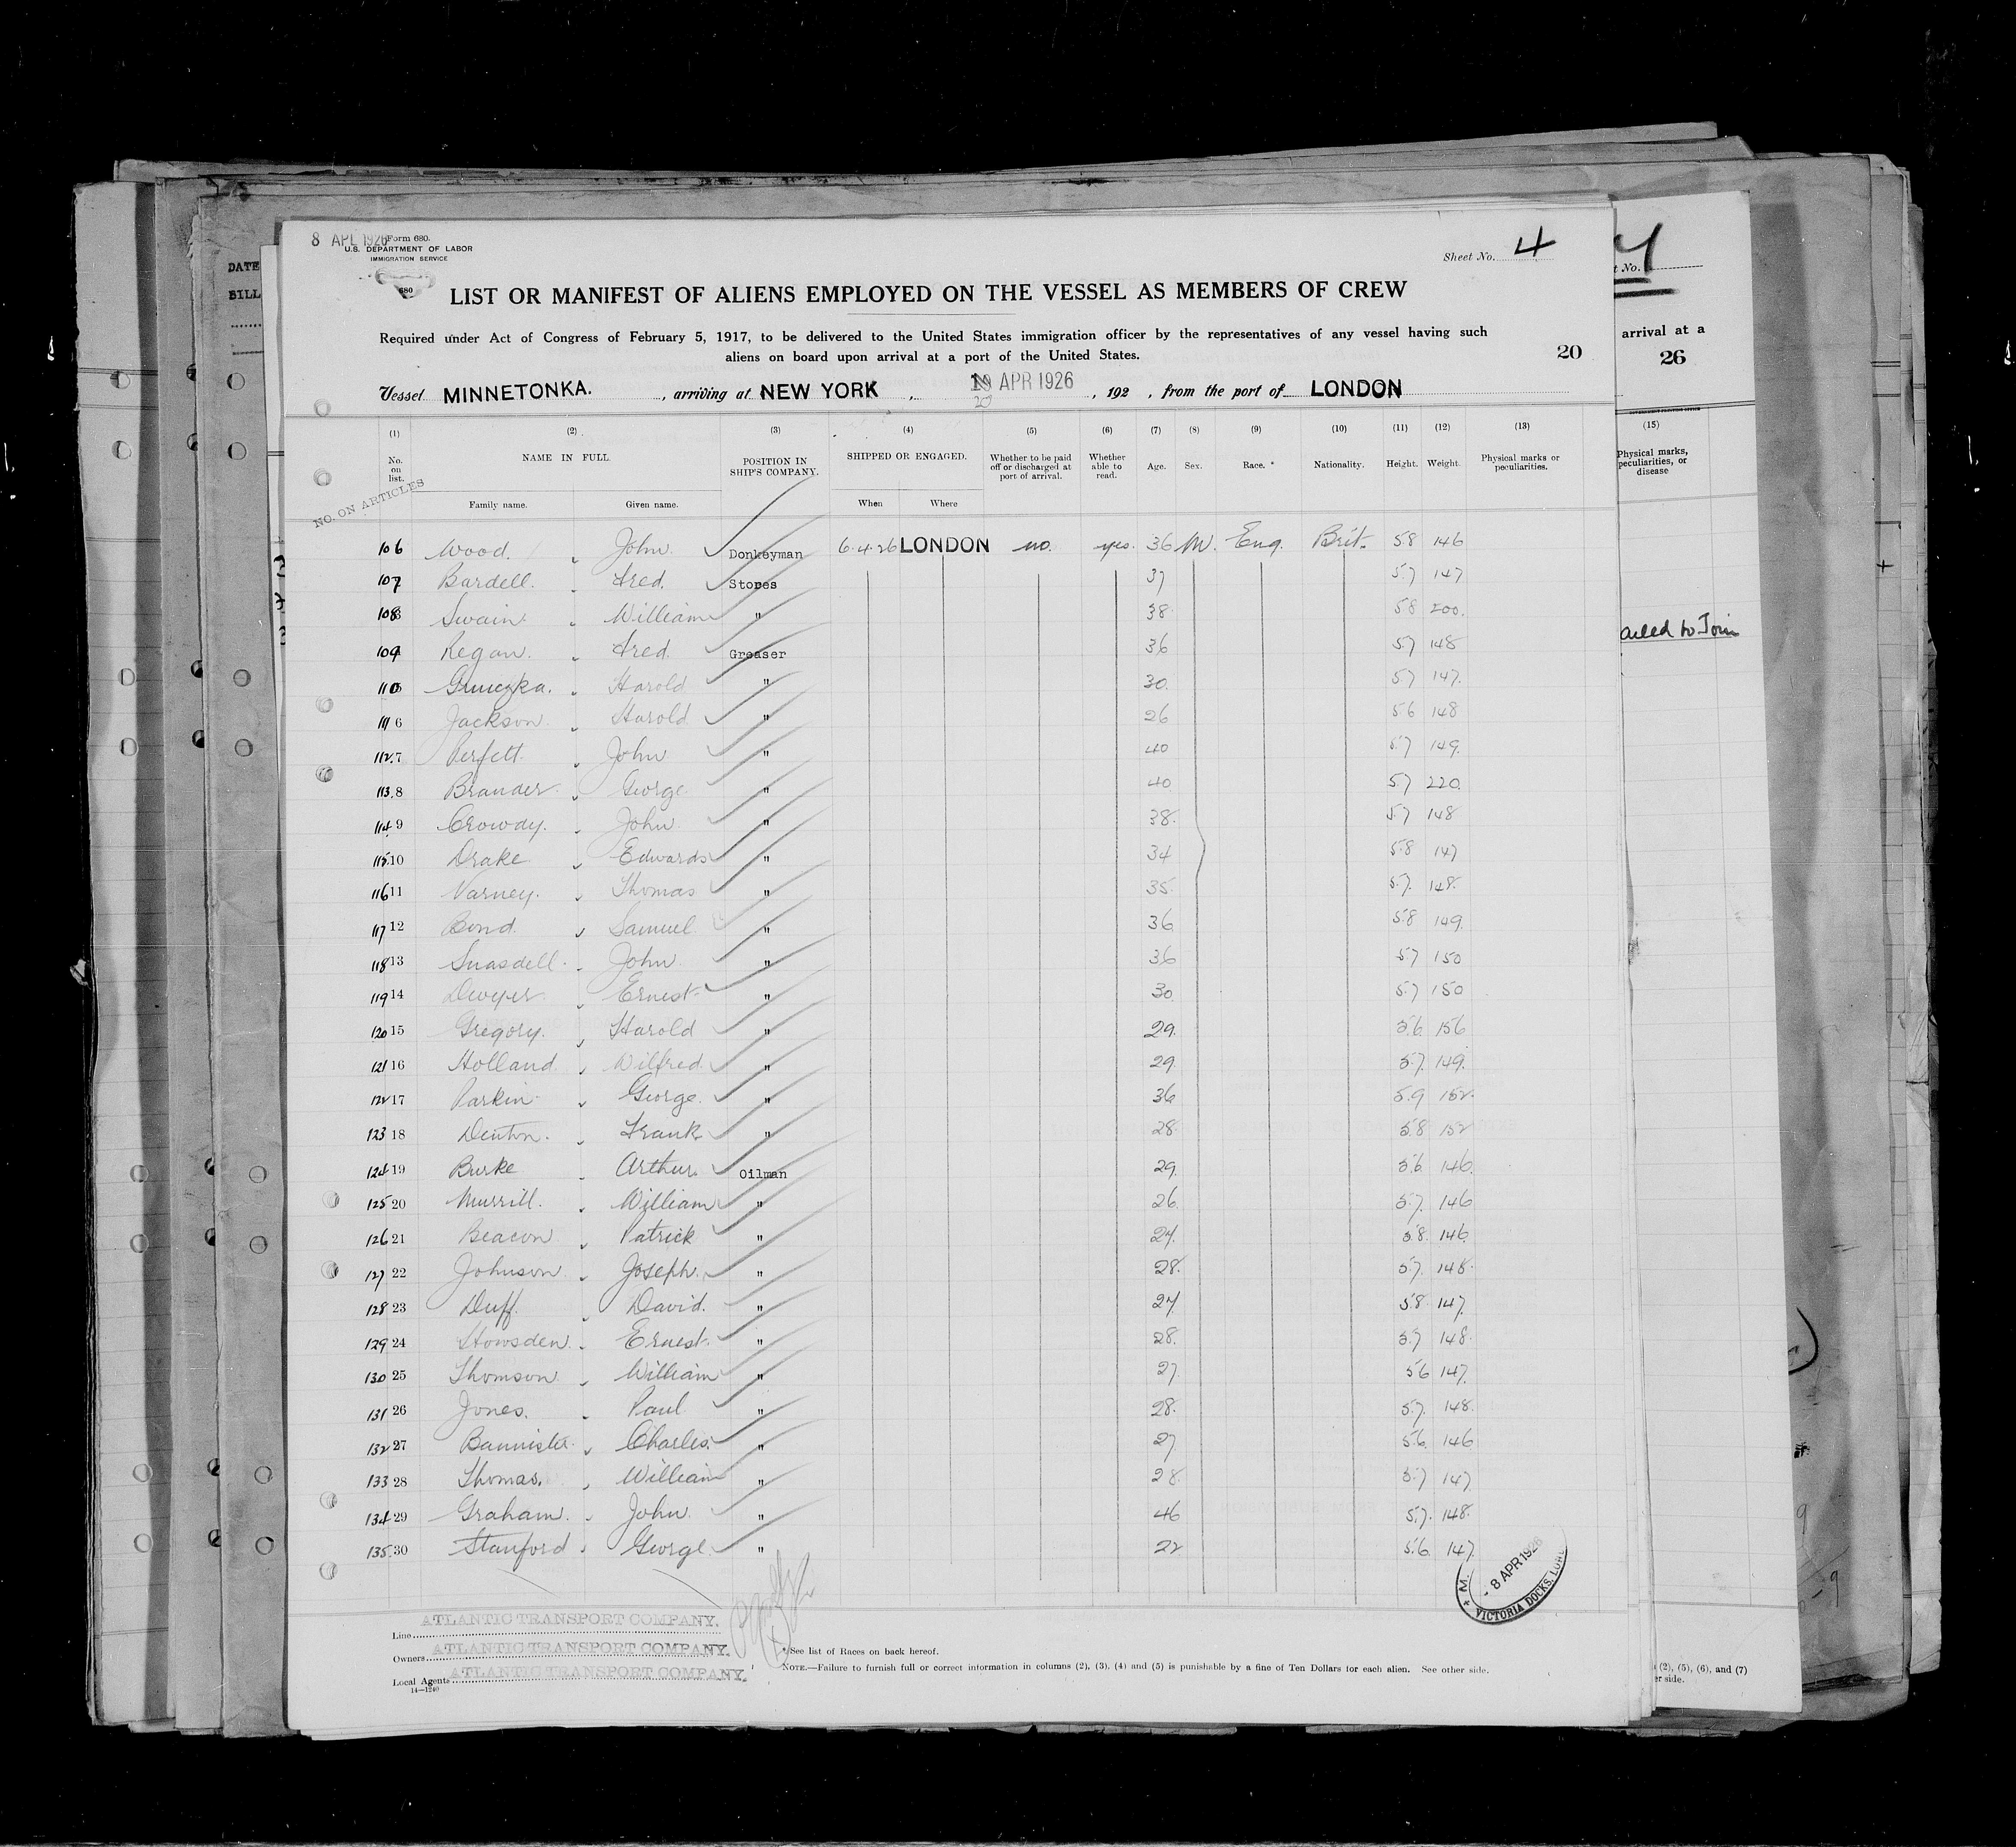 8 APL 1926 Form 680.
U.S. DEPARTMENT OF LABOR
IMMIGRATION SERVICE
680
Sheet No. 4
LIST OR MANIFEST OF ALIENS EMPLOYED ON THE VESSEL AS MEMBERS OF CREW
Required under Act of Congress of February 5, 1917, to be delivered to the United States immigration officer by the representatives of any vessel having such
aliens on board upon arrival at a port of the United States.
20
Vessel MINNETONKA. , arriving at NEW YORK , 20 APR 1926 , 192 , from the port of LONDON
(1) (2) (3) (4) (5) (6) (7) (8) (9) (10) (11) (12) (13)
No. on list. NAME IN FULL. POSITION IN SHIP'S COMPANY. SHIPPED OR ENGAGED. Whether to be paid off or discharged at port of arrival. Whether able to read. Age. Sex. Race. * Nationality. Height. Weight. Physical marks or peculiarities.
NO. ON ARTICLES
Family name. Given name. When Where
106 Wood. John Donkeyman 6.4.26 LONDON no. yes. 36 M. Eng. Brit. 58 146
107 Bardell. Fred. Stores 37 5.7 147
108 Swain. William " 38 58 200.
109 Regan. Fred. Greaser 36 5.7 148
110 Harold " 30. 5.7 147.
111 6 Jackson Harold " 26 56 148
112 7 Perfett John " 40 5.7 149.
113 8 Brander George " 40 5.7 220.
114 9 Crowdy. John " 38. 5.7 148
115 10 Drake Edwards " 34 5.8 147
116 11 Varney. Thomas " 35. 5.7. 148.
117 12 Bond. Samuel " 36 5.8 149.
118 13 Snasdell. John " 36 5.7 150
119 14 Dwyer Ernest " 30 5.7 150
120 15 Gregory. Harold " 29. 5.6. 156
121 16 Holland. Wilfred. " 29. 5.7. 149.
122 17 Parkin George. " 36 5.9 152.
123 18 Denton. Frank " 28. 5.8 152
124 19 Burke Arthur. Oilman 29. 5.6. 146.
125 20 Murrill. William " 26. 5.7. 146
126 21 Beacon Patrick " 24. 5.8. 146.
127 22 Johnson Joseph. " 28. 5.7. 148.
128 23 Duff. David. " 27. 5.8 147.
129 24 Howsden. Ernest. " 28. 5.7 148.
130 25 Thomson William " 27. 56 147.
131 26 Jones. Paul " 28. 5.7. 148.
132 27 Bannister. Charles. " 27. 5.6. 146
133 28 Thomas. William " 28. 5.7 147.
134 29 Graham. John. " 46 5.7. 148.
135 30 Stanford George. " 22 5.6. 147.
8 APR 1926
VICTORIA DOCKS,
Line ATLANTIC TRANSPORT COMPANY.
Owners ATLANTIC TRANSPORT COMPANY.
Local Agents ATLANTIC TRANSPORT COMPANY.
14—1240
* See list of Races on back hereof.
NOTE.—Failure to furnish full or correct information in columns (2), (3), (4) and (5) is punishable by a fine of Ten Dollars for each alien. See other side.
DATE
BILL
t No.
arrival at a
26
(15)
Physical marks, peculiarities, or disease
ailed to Join
(2), (5), (6), and (7)
er side.